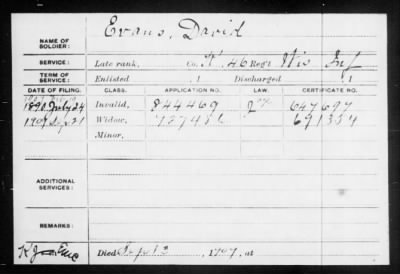 Evans, David
NAME OF SOLDIER:
SERVICE: Late rank, Co. K, 46 Reg't Wis Inf
TERM OF SERVICE: Enlisted , 1 Discharged , 1
DATE OF FILING. CLASS. APPLICATION NO. LAW. CERTIFICATE NO.
1890 July 24 Invalid, 844469 647697
Widow, 691354
Minor,
ADDITIONAL SERVICES:
REMARKS:
Died Sept 3, 1907, at